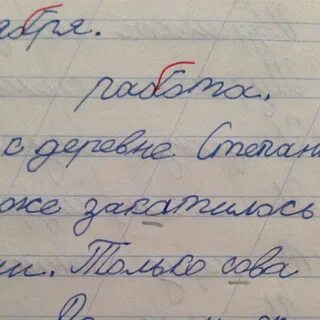 абря.
работа.
с деревне Степан
оже закатилось
ии. Только сова